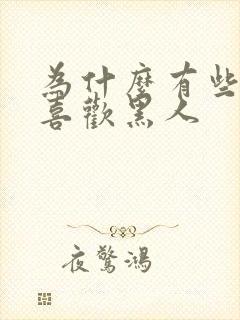 為什麼有些
喜歡黑人
夜驚鴻